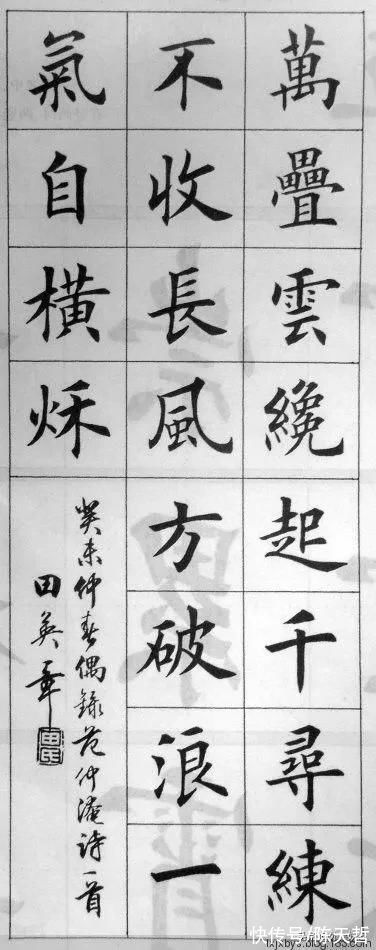 萬疊雲纔起千尋練
不收長風方破浪一
氣自橫秌
癸未仲春偶錄范仲淹詩一首
田英章
快传号/陈天哲